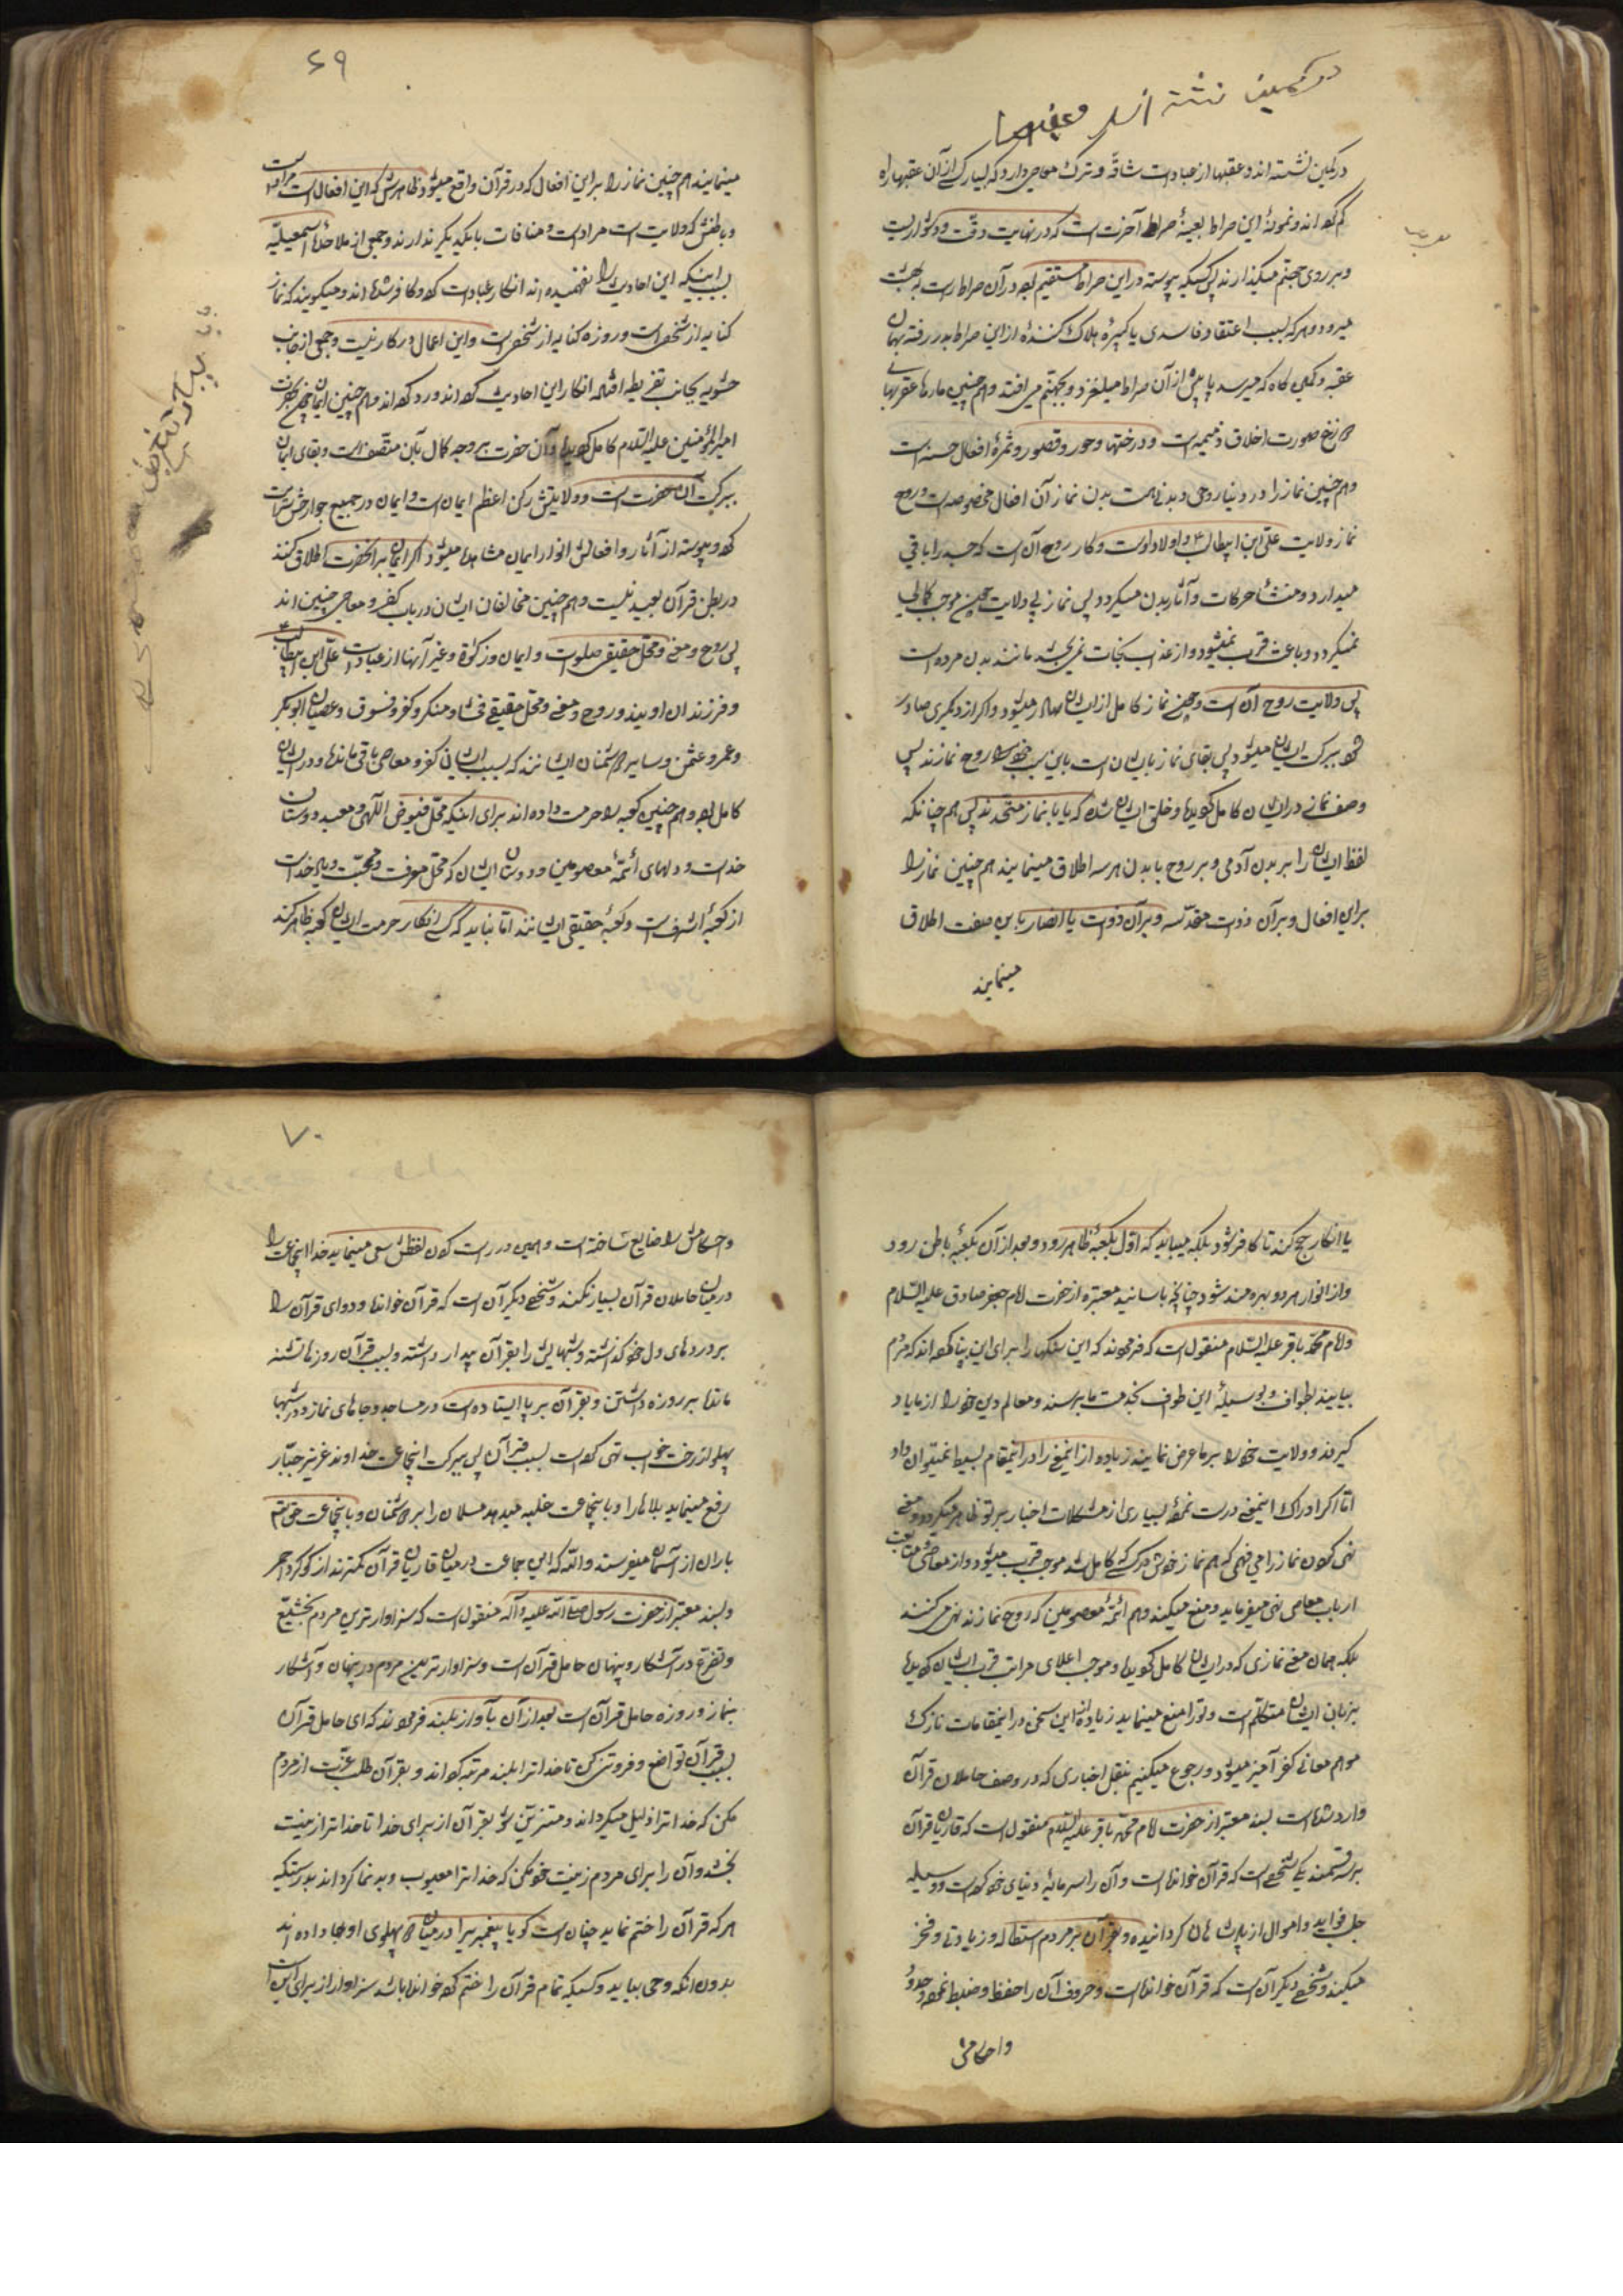 در کمین نشسته اند و عقبها
در کمین نشسته اند و عقبها از عبادات شاقّه و ترک معاصی دارد که بسیار کسی از آن عقبها راه
کم کرده اند و نمونهٔ این صراط بعینهٔ صراط آخرتست که در نهایت دقّت و دشواریست
و بر روی جهنم میگذارند پس کسیکه پیوسته در این صراط مستقیم بوده در آن صراط راست به بهشت
میرود و هر که بسبب اعتقاد فاسدی یا کبیرهٔ هلاک کنندهٔ از این صراط بدر رفته بهمان
عقبه و کمین گاه که میرسد پایش از آن صراط میلغزد و بجهنم می افتد و هم چنین مارها و عقربهای
دوزخ صورت اخلاق ذمیمه است و درختها و حور و قصور و ثمرهٔ افعال حسنه است
و هم چنین نماز را در دنیا روحی و بدنی هست بدن نماز آن افعال مخصوصه است و روح
نماز ولایت علیّ ابن ابیطالب و اولاد اوست و کار روح آنست که جسد را باقی
میدارد و منشأ حرکات و آثار بدن میگردد پس نماز بی ولایت چون موجب کمالی
نمیگردد و باعث قرب نمیشود و از عذاب نجات نمی بخشد مانند بدن مرده است
پس ولایت روح آنست و چون نماز کامل از ایشان صادر میشود و اگر از دیگری صادر
شود ببرکت ایشان میشود پس بقای نماز بایشان است باین سبب ایشان روح نمازند پس
وصف نماز در ایشان کامل گردیده و خلق ایشان شده که گویا با نماز متحد ند پس هم چنانکه
لفظ انسان را بر بدن آدمی و بر روح با بدن هر سه اطلاق مینمایند هم چنین نماز را
بر این افعال و بر آن ذوات مقدّسه و بر آن ذوات با اتصاف باین صفت اطلاق
مینمایند
۶۹
مینمایند هم چنین نماز را بر این افعال که در قرآن واقع میشود ظاهرش که این افعال است مراد است
و باطنش که ولایت است مراد است و منافات با یکدیگر ندارند و جمعی از ملاحدهٔ اسمعیلیّه
بسبب اینکه این احادیث را نفهمیده اند انکار عبادات کرده و کافر شده اند و میگویند که نماز
کنایه از شخص است و روزه کنایه از شخص است و این اعمال در کار نیست و جمعی از جانب
حشویه بجانب تفریط افتاده انکار این احادیث کرده اند و رد کرده اند و هم چنین ایمان چون بحضرت
امیر المؤمنین علیه السلام کامل گردیده و آن حضرت بر وجه کمال بآن متصف است و بقای ایمان
ببرکت آن حضرتست و ولایتش رکن اعظم ایمانست و ایمان در جمیع جوارحش سرایت
کرده و پیوسته از آثار و افعالش انوار ایمان مشاهده میشود اگر ایمان بر آنحضرت اطلاق کنند
در بطن قرآن بعید نیست و هم چنین مخالفان ایشان در باب کفر و معاصی چنین اند
پس روح و معنی و محل حقیقی صلوات و ایمان و زکوة و غیر آنها از عبادات علی ابن ابیطالب
و فرزندان اویند و روح و معنی و محل حقیقی فحشا و منکر و کفر و فسوق و عصیان ابوبکر
و عمر و عثمن و سایر دشمنان ایشانند که بسبب ایشان کفر و معاصی باقی مانده و در ایشان
کامل بوده و هم چنین کعبه را حرمت داده اند برای اینکه محل فیوض الٓهی و معبد دوستان
خداست و دلهای ائمهٔ معصومین و دوستان ایشان که محل معرفت و محبّت و یاد خداست
از کعبه اشرفست و کعبهٔ حقیقی ایشانند امّا نباید که کسی انکار حرمت این کعبهٔ ظاهر کند
یا انکار حج کند تا کافر شود بلکه میباید که اوّل بکعبهٔ ظاهر رود و بعد از آن بکعبهٔ باطن رود
و از انوار هر دو بهره مند شود چنانچه باسانید معتبره از حضرت امام جعفر صادق علیه السّلام
و امام محمّد باقر علیه السّلام منقول است که فرمودند که این سنگها را برای این بنا کرده اند که مردم
بیایند بطواف و بوسیلهٔ این طواف بخدمت ما برسند و معالم دین خود را از ما یاد
گیرند و ولایت خود را بر ما عرض نمایند زیاده از این معنی را در این مقام بسط نمیتوان داد
امّا اگر ادراک این معنی درست نمودهٔ بسیاری از مشکلات اخبار بر تو ظاهر میگردد و معنی
نهی کردن نماز را می فهمی که هم نماز خودش در کسی که کامل شد موجب قرب میشود و از معاصی
ارباب معاصی نهی میفرماید و منع میکند و هم ائمّهٔ معصومین که روح نمازند نهی میکنند
بلکه همان معنی نمازی که در ایشان کامل گردیده و موجب اعلای مراتب قرب ایشان گردیده
بزبان ایشان متکلّم است و تو را منع مینماید زیاده از این سخن در این مقامات نازک
موهم معانی کفر آمیز میشود و رجوع میکنیم بنقل اخباری که در وصف حاملان قرآن
وارد شده است بسند معتبر از حضرت امام محمّد باقر علیه السّلام منقول است که قاریان قرآن
بر سه قسمند یکی شخصی است که قرآن خوانده است و آن را سرمایهٔ دنیای خود کرده است و وسیله
جلب فواید و اموال از پادشاهان گردانیده و بقرآن بر مردم استطاله و زیادتی و فخر
میکند و شخصی دیگر آنست که قرآن خوانده است و حروف آن را حفظ و ضبط نموده و حدود
و احکامش
۷۰
و احکامش را ضایع ساخته است و همین در درست کردن لفظش سعی مینماید خدا اینجماعت را
در میان حاملان قرآن بسیار نکند و شخصی دیگر آنست که قرآن خوانده و دوای قرآن را
بر دردهای دل خود گذاشته و شبهایش را بقرآن بیدار داشته و بسبب قرآن روزها تشنه
مانده بروزه داشتن و بقرآن بر پا ایستاده است در مساجد و جاهای نماز و در شبها
پهلو از رخت خواب تهی کرده است بسبب قرآن پس ببرکت اینجماعت خداوند عزیز جبّار
رفع مینماید بلاها را و باینجماعت غلبه میدهد مسلمانان را بر دشمنان و باینجماعت حق تع
باران از آسمان میفرستد و اللّه که این جماعت در میان قاریان قرآن کمترند از گوگرد احمر
و بسند معتبر از حضرت رسول صلی اللّه علیه و آله منقول است که سزاوارترین مردم بتخشّع
و تضرّع در آشکار و پنهان حامل قرآنست و سزاوارترین مردم در پنهان و آشکار
بنماز و روزه حامل قرآنست بعد از آن بآواز بلند فرمودند که ای حامل قرآن
بسبب قرآن تواضع و فروتنی کن تا خدا ترا بلند مرتبه گرداند و بقرآن طلب عزّت از مردم
مکن که خدا ترا ذلیل میگرداند و متزیّن شو بقرآن از برای خدا تا خدا ترا زینت
بخشد و آن را برای مردم زینت خود مکن که خدا ترا معیوب و بدنما گرداند بدرستیکه
هر که قرآن را ختم نماید چنانست که گویا پیغمبریرا در میان دو پهلوی او جا داده اند
بدون آنکه وحی بیاید و کسیکه تمام قرآن را ختم کرده خوانده باشد سزاوار از برای او این است